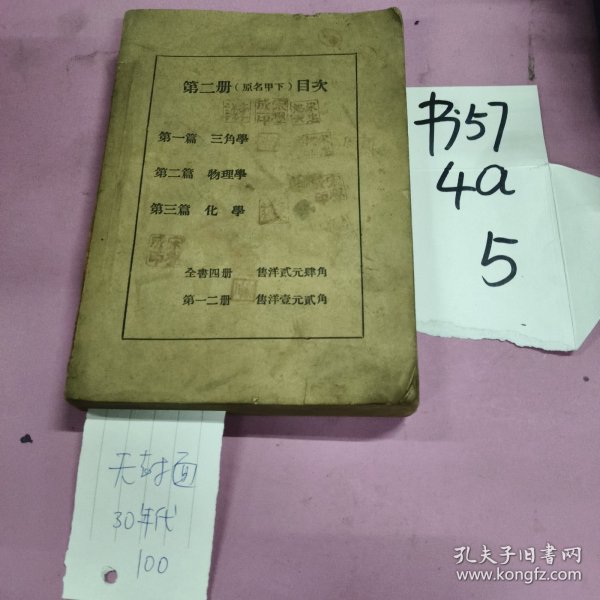 第二册（原名甲下）目次
第一篇 三角學
第二篇 物理學
第三篇 化學
全書四册 售洋貳元肆角
第一二册 售洋壹元貳角
书57
4a
5
无封面
30年代
100
孔夫子旧书网
www.kongfz.com